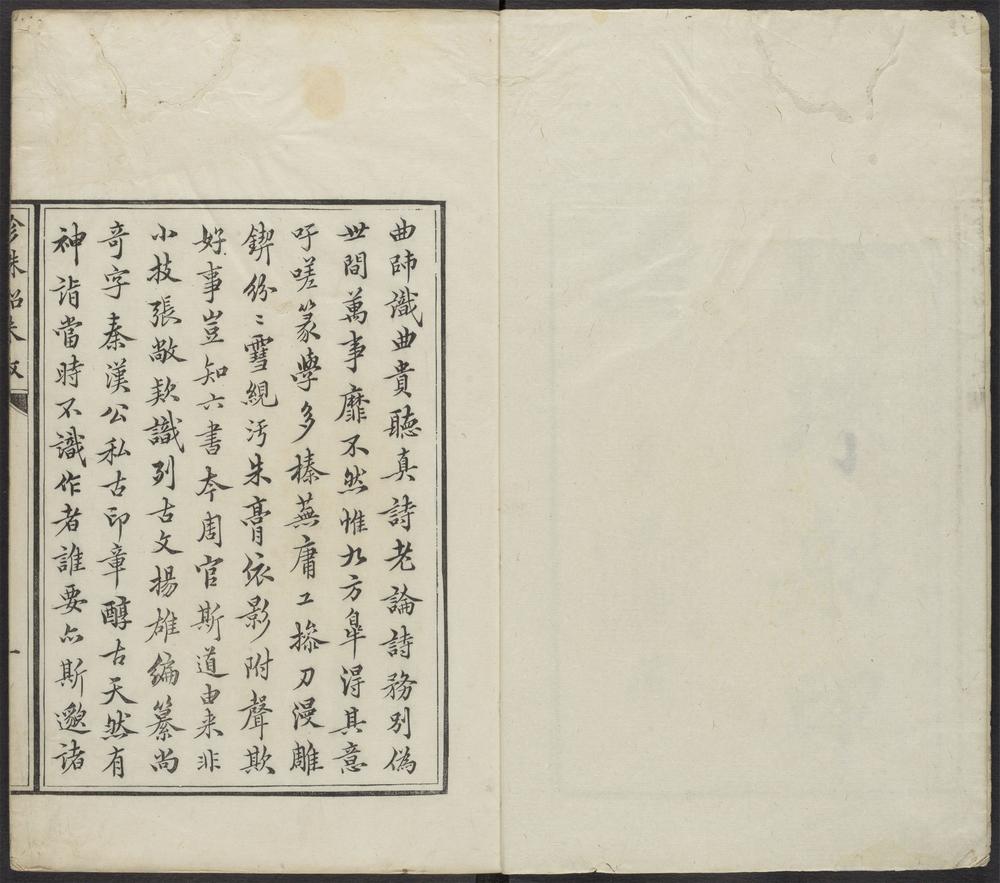 曲師識曲貴聽真詩老論詩務別偽
世間萬事靡不然惟九方皐淂其意
吁嗟篆學多榛蕪庸工摻刀漫雕
鍥紛〻雪繭汚朱膏依影附聲欺
好事豈知六書夲周官斯道由来非
小技張敞欵識列古文揚雄編纂尚
奇字秦漢公私古印章醇古天然有
神詣當時不識作者誰要亦斯邈諸
一